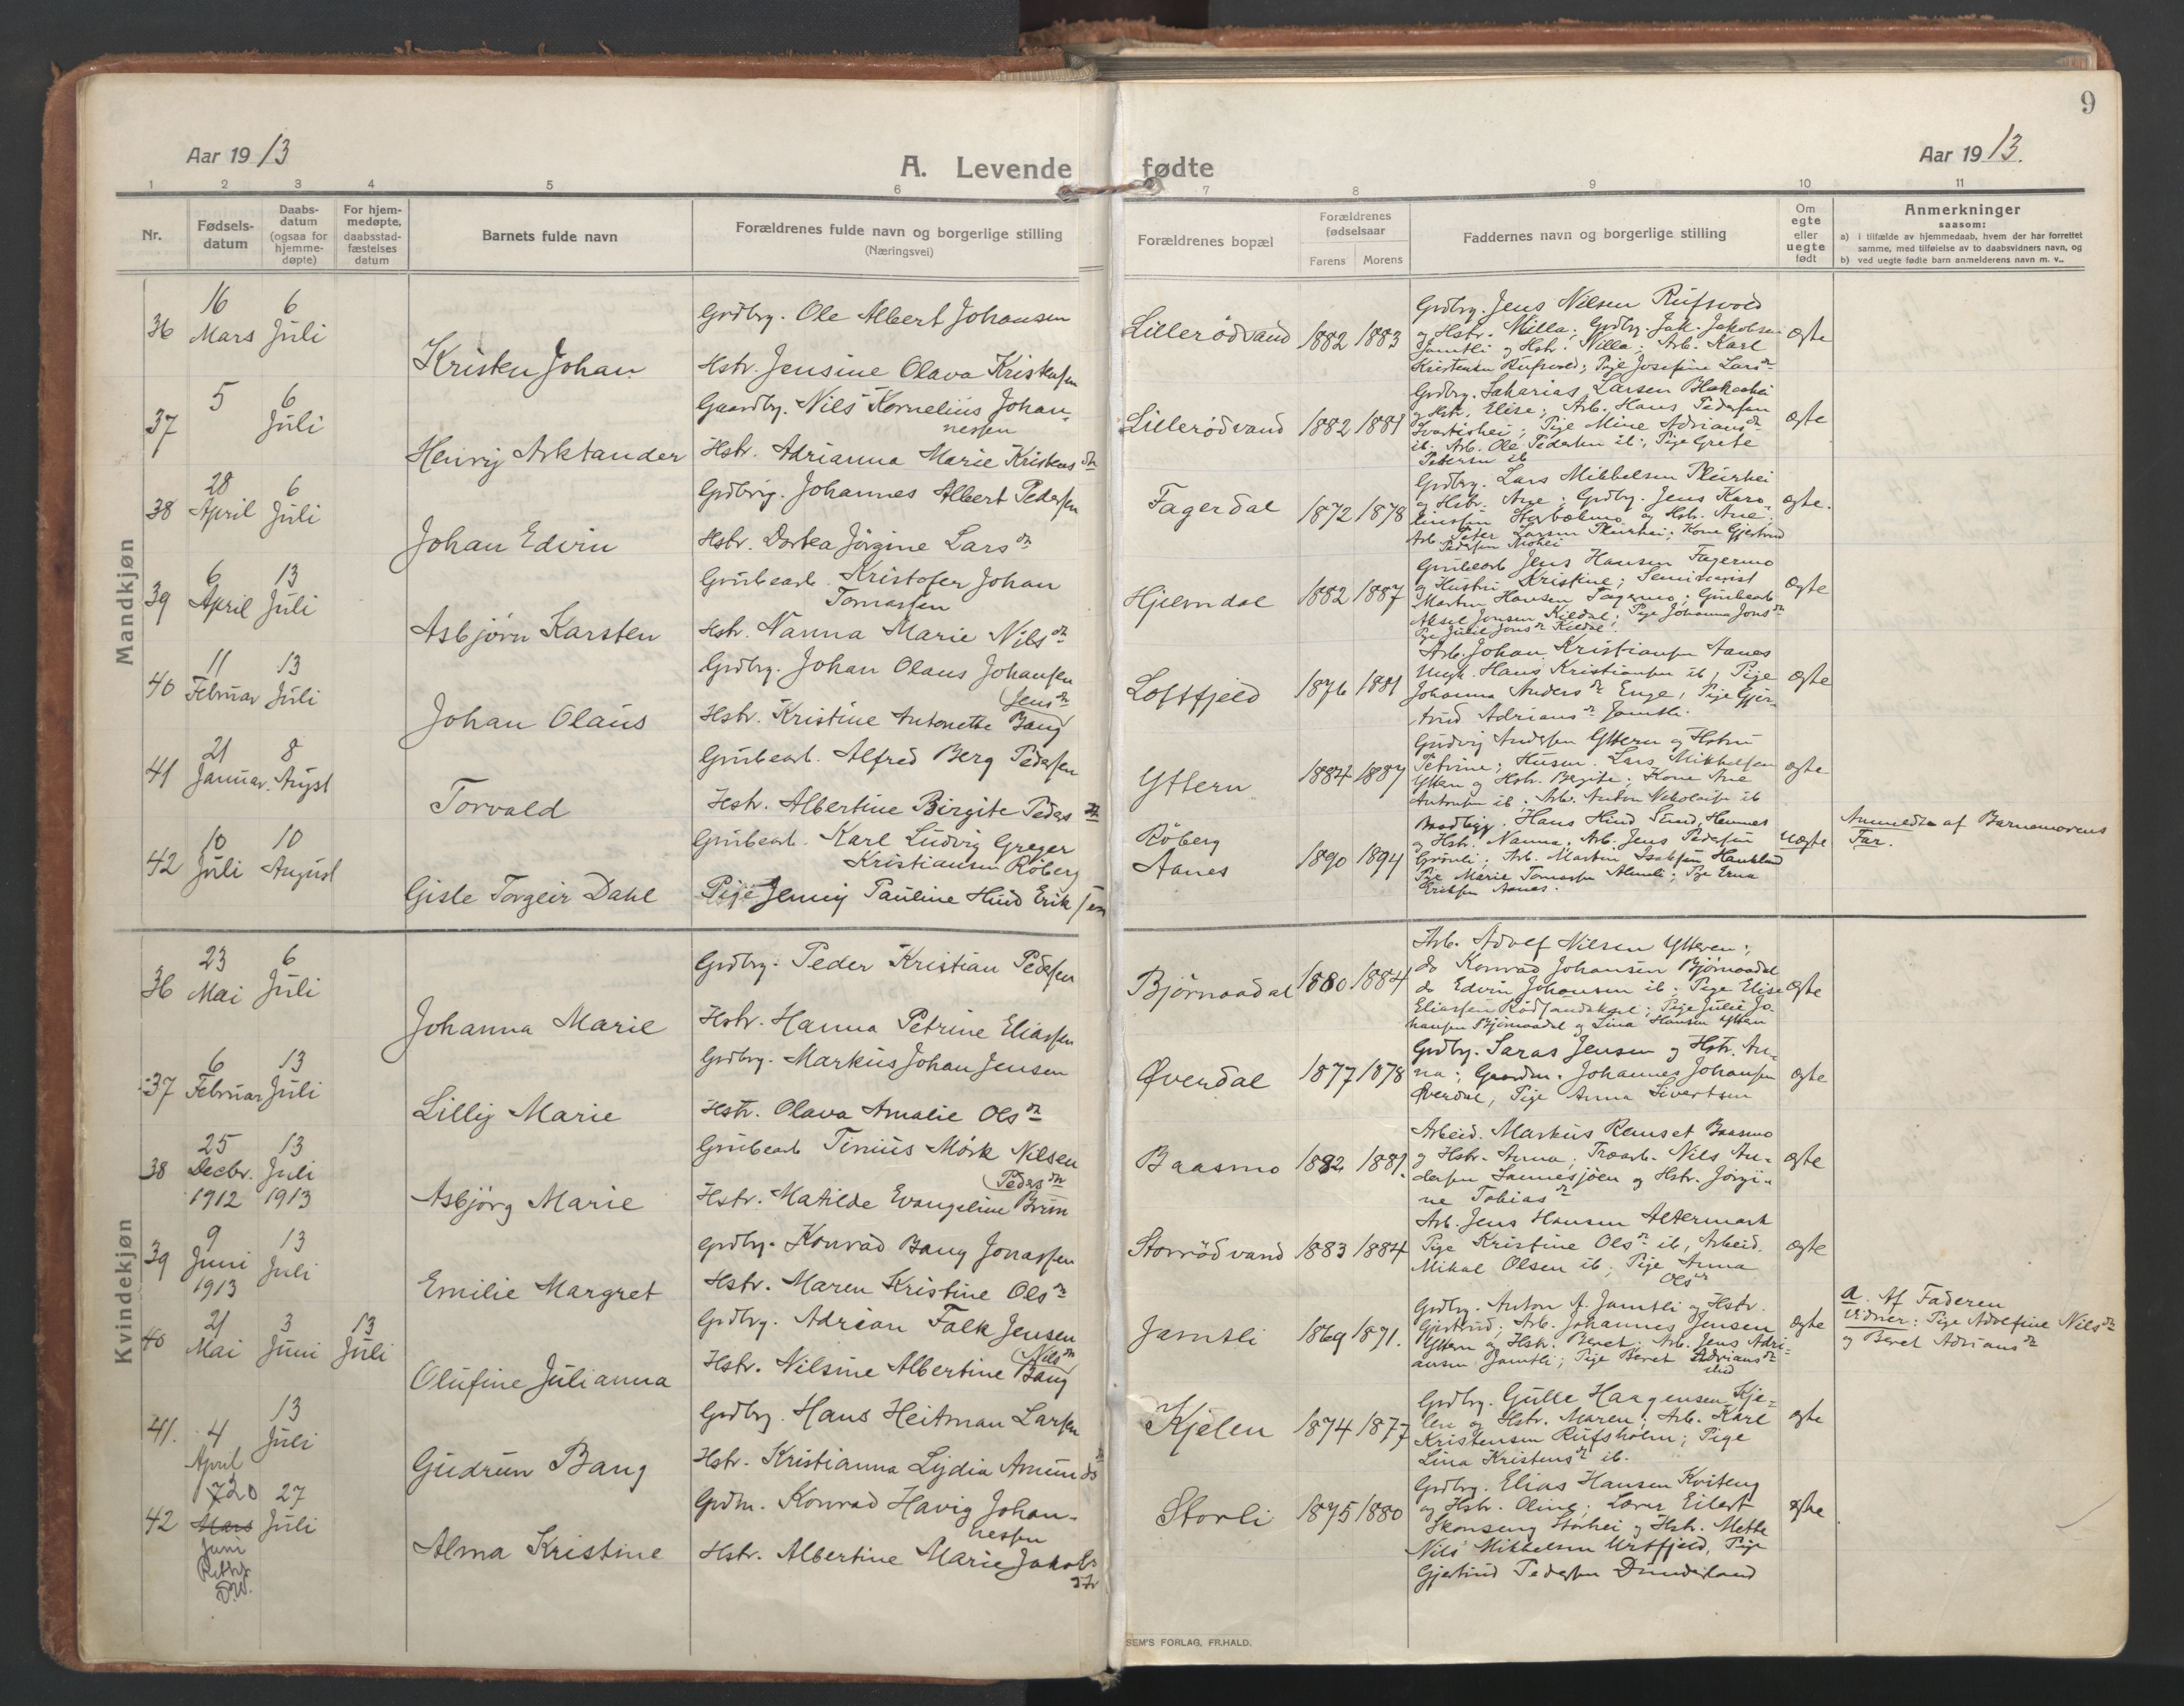 9
Aar 1913
A. Levende fødte
Aar 1913.
1 2 3 4 5 6 7 8 9 10 11
Nr.
Fødsels-
datum
Daabs-
datum
(ogsaa for
hjemme-
døpte)
For hjem-
medøpte,
daabsstad-
fæstelses
datum
Barnets fulde navn
Forældrenes fulde navn og borgerlige stilling
(Næringsvei)
Forældrenes bopæl
Forældrenes
fødselsaar
Farens Morens
Faddernes navn og borgerlige stilling
Om
egte
eller
uegte
født
Anmerkninger
saasom:
a) i tilfælde av hjemmedaab, hvem der har forrettet
samme, med tilføielse av to daabsvidners navn, og
b) ved uegte fødte barn anmelderens navn m. v..
Mandkjøn
36 16 Mars 6 Juli
Kristen Johan
Grdbrg. Ole Albert Johansen
Hstr. Jensine Olava Kristensen
Lillerødvand 1882 1883
Grdbrg. Jens Nilsen Rufsvold
og Hstr. Milla; Grdbrg. Jak. Jakobsen
Jamtli og Hstr. Nilla; Arb. Karl
Kristensen Rufsvold; Pige Josefine Larsdr
egte
37 5 6 Juli
Henrij Arktander
Gaardbrg. Nils Kornelius Johan-
nessen
Hstr. Adrianna Marie Kristensdr
Lillerødvand 1882 1881
Grdbrg. Sakarias Larsen
og Hstr. Elise; Arb. Hans Pedersen
Svartishei; Pige Mine Adriansdr
ib. Arb. Ole Pedersen ib; Pige Grete
Petersen ib
egte
38 28 April 6 Juli
Johan Edvin
Grdbrg. Johannes Albert Pedersen
Hstr. Dorkea Jørgine Larsdr
Fagerdal 1872 1878
Grdbrg. Lars Mikkelsen Plurhei
og Hstr. Ane; Grdbg. Jens Karo-
liussen og Hstr. Ane;
Arb. Peter Larsen Plurhei; Kone Gjertrud
Pedersen Mohei
egte.
39 6 April 13 Juli
Asbjørn Karsten
Grubearb. Kristofer Johan
Tomassen
Hstr. Nanna Marie Nilsdr
Hjelmdal 1882 1887
Grubearb Jens Hansen Fagermo
og Hustru Kristine; Seminarist
Martin Hansen Fagermo; Grubearb
Aksel Jonsen Kildal; Pige Johanna Jonsdr
Pge Julie Jonsdr Kildal.
egte
40 11 Februar 13 Juli
Johan Olaus
Grdbrg. Johan Olaus Johansen
(Jensdr)
Hstr. Kristine Antonette Bang
Loftfjeld 1876 1881
Arb. Johan Kristiansen Aanes
Ungk. Hans Kristiansen ib; Pige
Johanna Andersdr Enge; Pige Gjer-
trud Adriansdr Jamtli.
egte
41 21 Januar. 8 Augst
Torvald
Grubearb. Alfred Berg Pedersen
Hstr. Albertine Birgite Pedersdr
Yttern 1884 1887
Andersen Yttern og Hstru
Petrine; Husm. Lars Mikkelsen
Yttern og Hstr. Bergite; Kone Ane
Antonsen ib; Arb. Anton Nikolaisen ib
egte
42 10 Juli 10 August
Gisle Torgeir Dahl
Grubearb. Karl Ludvig Greger
Kristiansen Røberg
Pige Jenny Pauline Hind Eriksen
Røberg
Aanes 1890 1894
Hans Hind
og Hstr. Nanna; Arb. Jens Pedersen
Grønli; Arb. Martin Isaksen
Pige Marie Tomassen; Pge Erna
Eriksen Aanes.
uegte
Anmeldte af Barnemorens
Far.
Kvindekjøn
36 23 Mai 6 Juli
Johanna Marie
Grdbrg. Peder Kristian Pedersen
Hstr. Hanna Petrine Eliassen
Bjørnaadal 1880 1884
Arb. Adolf Nilsen Ytteren;
do Konrad Johansen Bjørnaadal
do Edvin Johansen ib; Pige Elise
Eliassen; Pige Julie Jo-
hansen Bjørnaadal og Lina Hansen Yttern
egte
37 6 Februar 13 Juli
Lillij Marie
Grdbrg. Markus Johan Jensen
Hstr. Olava Amalie Olsdr
Øverdal 1877 1878
Grdbrg. Saras Jensen og Hstr. An-
na; Gaardm. Johannes Johansen
Øverdal, Pige Anna Sivertsen
egte
38 25 Decbr. 1912 13 Juli 1913
Asbjørg Marie
Grubearb Tinius Mørk Nilsen
(Pedersdr)
Hstr. Matilde Evangeline Brun
Baasmo 1882 1881.
Arbeid. Markus Ranset Baasmo
og Hstr. Anna; Træarb. Nils An-
dersen Sannesjøen og Hstr. Jørgi-
ne Tobiasdr
egte
39 9 Juni 1913 13 Juli
Emilie Margret
Grdbrg. Konrad Bang Jonassen
Hstr. Maren Kristine Olsdr
Storrødvand 1883 1884
Arb. Jens Hansen Altermark
Pige Kristine Olsdr ib, Arbeid.
Mikal Olsen ib; Pige Anna
Olsdr
egte
40 21 Mai 3 Juni 13 Juli
Olufine Julianna
Grdbrg. Adrian Falk Jensen
(Nilsdr)
Hstr. Nilsine Albertine Bang
Jamtli 1869 1871.
Grdbrg. Anton A. Jamtli og Hstr.
Gjertrud; Arb. Johannes Jensen
Yttern og Hstr. Beret; Arb. Jens Adri-
ansen Jamtli; Pige Beret Adriansdr
ibid
egte
a. Af Faderen
Vidner: Pige Adolfine Nilsdr
og Beret Adriansdr
41. 4 April 13 Juli
Gudrun Bang
Grdbrg. Hans Heitman Larsen
Hstr. Kristianna Lydia Amundsdr
Kjelen 1874 1877
Grdbrg. Gulle Haagensen Kje-
len og Hstr. Maren; Arb. Karl
Kristensen Rufsholm; Pige
Lina Kristensdr ib.
egte
42 20 Mars Juni 27 Juli
Alma Kristine
Grdm. Konrad Havig Johan-
nessen
Hstr. Albertine Marie Jakobs
dtr
Storli 1875 1880
Grdbrg. Elias Hansen Kviteng
og Hstr. Oline; Lærer Eilert
Skonseng Storhei og Hstr. Mette
Nils Mikkelsen Urtfjeld, Pige
Gjertrud Pedersen Dunderland
egte
SEM'S FORLAG, FR.HALD.